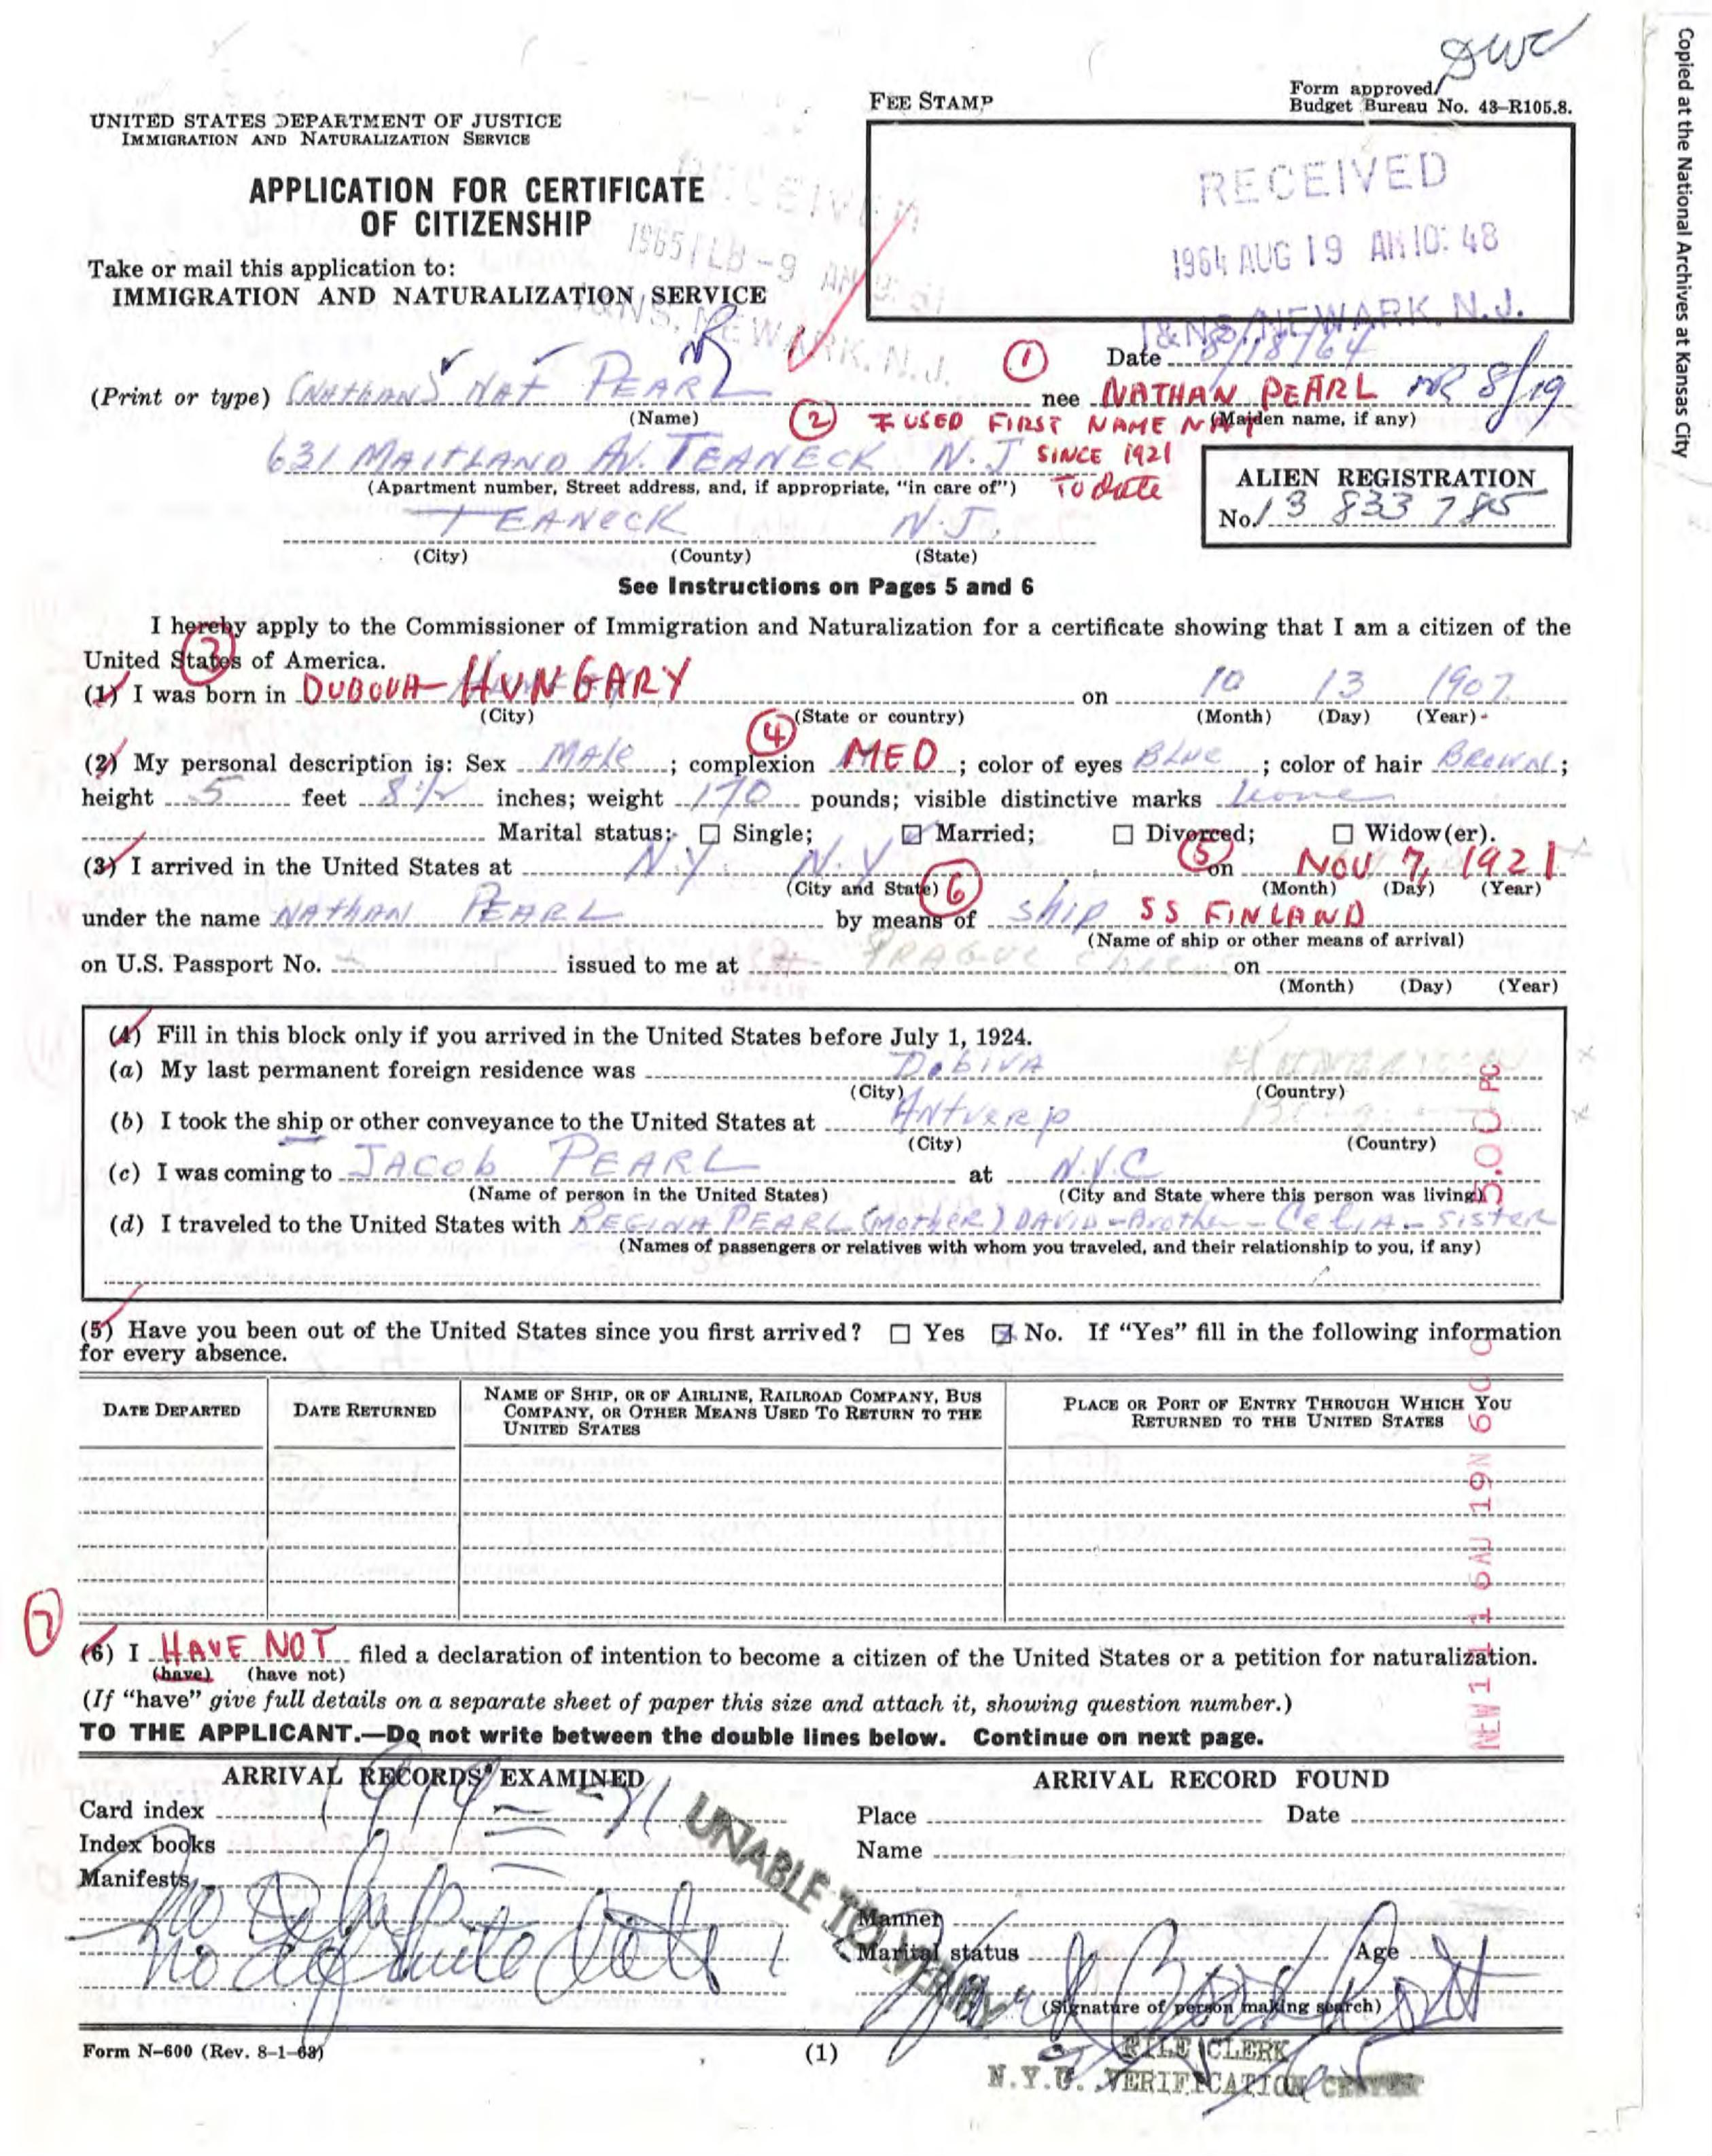 Copied at the National Archives at Kansas City
DWC
UNITED STATES DEPARTMENT OF JUSTICE
IMMIGRATION AND NATURALIZATION SERVICE
FEE STAMP
Form approved
Budget Bureau No. 43–R105.8.
APPLICATION FOR CERTIFICATE
OF CITIZENSHIP
RECEIVED
1964 AUG 19 AM 10:48
I&NS/NEWARK. N.J.
RECEIVED
1965 FEB -9 AM
I&NS, NEWARK, N.J.
Take or mail this application to:
IMMIGRATION AND NATURALIZATION SERVICE
① Date 8/18/64
(Print or type) (NATHAN) NAT PEARL nee NATHAN PEARL NR 8/19
(Name) (Maiden name, if any)
② I USED FIRST NAME NAT
SINCE 1921
TO date
631 MAITLAND AV. TEANECK N.J
(Apartment number, Street address, and, if appropriate, "in care of")
TEANECK N.J.
(City) (County) (State)
ALIEN REGISTRATION
No. 13 833 785
See Instructions on Pages 5 and 6
I hereby apply to the Commissioner of Immigration and Naturalization for a certificate showing that I am a citizen of the
United States of America.
③
(1) I was born in DUBOVA-HUNGARY on 10 13 1907
(City) (State or country) (Month) (Day) (Year)
④
(2) My personal description is: Sex Male; complexion MED; color of eyes BLUE; color of hair BROWN;
height 5 feet 8 1/2 inches; weight 170 pounds; visible distinctive marks none
Marital status: ☐ Single; ☑ Married; ☐ Divorced; ☐ Widow(er).
⑤
(3) I arrived in the United States at N.Y. N.Y on NOV 7, 1921
(City and State) (Month) (Day) (Year)
⑥
under the name NATHAN PEARL by means of ship SS FINLAND
(Name of ship or other means of arrival)
on U.S. Passport No. issued to me at PRAGUE on
(Month) (Day) (Year)
(4) Fill in this block only if you arrived in the United States before July 1, 1924.
(a) My last permanent foreign residence was DobiVA
(City) (Country)
(b) I took the ship or other conveyance to the United States at ANtverp
(City) (Country)
(c) I was coming to JACob PEARL at N.Y.C
(Name of person in the United States) (City and State where this person was living)
(d) I traveled to the United States with REGINA PEARL (MOtHER) DAVID-Brother - CeliA - SisteR
(Names of passengers or relatives with whom you traveled, and their relationship to you, if any)
(5) Have you been out of the United States since you first arrived? ☐ Yes ☒ No. If "Yes" fill in the following information
for every absence.
DATE DEPARTED
DATE RETURNED
NAME OF SHIP, OR OF AIRLINE, RAILROAD COMPANY, BUS
COMPANY, OR OTHER MEANS USED TO RETURN TO THE
UNITED STATES
PLACE OR PORT OF ENTRY THROUGH WHICH YOU
RETURNED TO THE UNITED STATES
⑦
(6) I HAVE NOT filed a declaration of intention to become a citizen of the United States or a petition for naturalization.
(have) (have not)
(If "have" give full details on a separate sheet of paper this size and attach it, showing question number.)
TO THE APPLICANT.—Do not write between the double lines below. Continue on next page.
ARRIVAL RECORDS EXAMINED
Card index 1919 = 21
Index books
Manifests
no definite date
ARRIVAL RECORD FOUND
Place Date
Name
Manner
Marital status Age
(Signature of person making search)
UNABLE TO VERIFY
Form N–600 (Rev. 8–1–63)
(1)
FILE CLERK
N.Y.C. VERIFICATION CENTER